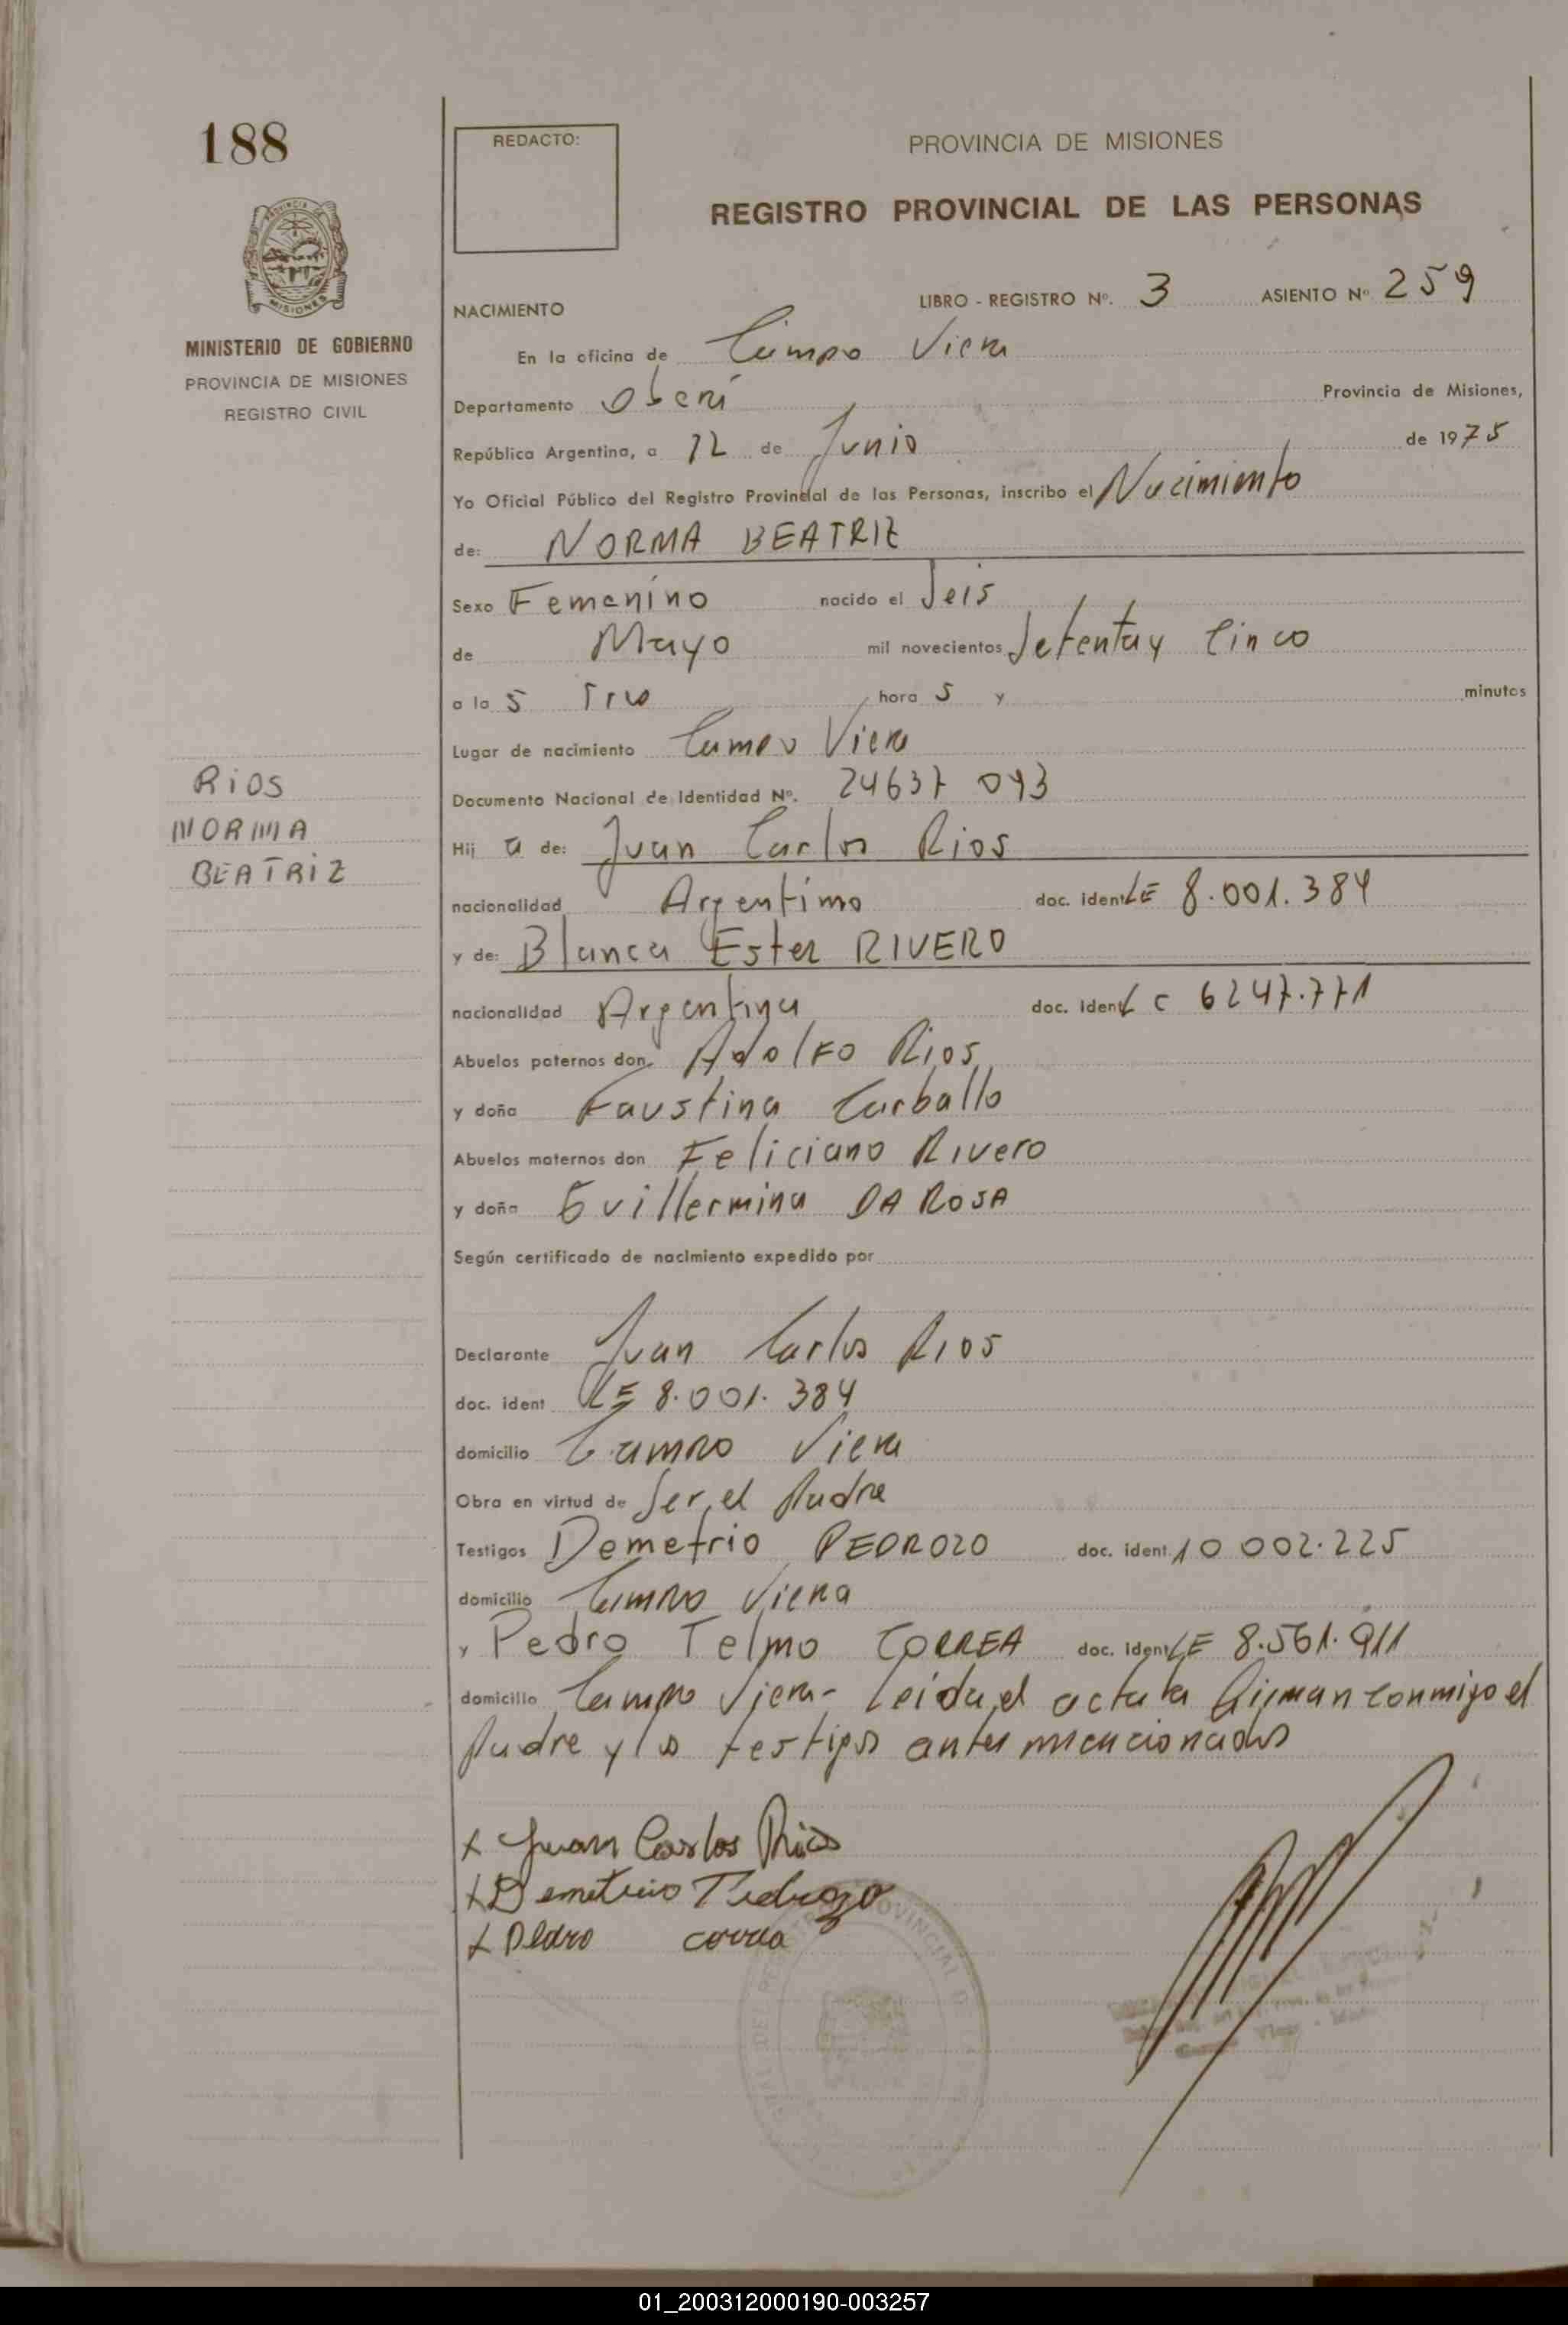 188
REDACTO:
PROVINCIA DE MISIONES
REGISTRO PROVINCIAL DE LAS PERSONAS
MINISTERIO DE GOBIERNO
PROVINCIA DE MISIONES
REGISTRO CIVIL
NACIMIENTO LIBRO - REGISTRO Nº. 3 ASIENTO Nº 259
En la oficina de Campo Viera
Departamento Oberá Provincia de Misiones,
República Argentina, a 12 de Junio de 1975
Yo Oficial Público del Registro Provincial de las Personas, inscribo el Nacimiento
de: NORMA BEATRIZ
Sexo Femenino nacido el Seis
de Mayo mil novecientos Setenta y Cinco
a la 5 hora 5 y minutos
Lugar de nacimiento Campo Viera
RiOS
NORMA
BEATRiZ
Documento Nacional de Identidad Nº. 24637 093
Hij a de: Juan Carlos Rios
nacionalidad Argentino doc. ident LE 8.001.384
y de: Blanca Ester RIVERO
nacionalidad Argentina doc. ident L C 6247.771
Abuelos paternos don Adolfo Rios
y doña Faustina Carballo
Abuelos maternos don Feliciano Rivero
y doña Guillermina DA ROSA
Según certificado de nacimiento expedido por
Declarante Juan Carlos Rios
doc. ident LE 8.001.384
domicilio Campo Viera
Obra en virtud de Ser el Padre
Testigos Demetrio PEDROZO doc. ident. 10 002.225
domicilio Campo Viera
y Pedro Telmo CORREA doc. ident LE 8.561.911
domicilio Campo Viera- Leida el acta la Firman conmigo el
Padre y los testigos antes mencionados
x Juan Carlos Rios
x Demetrio Pedrozo
x Pedro correa
01_200312000190-003257